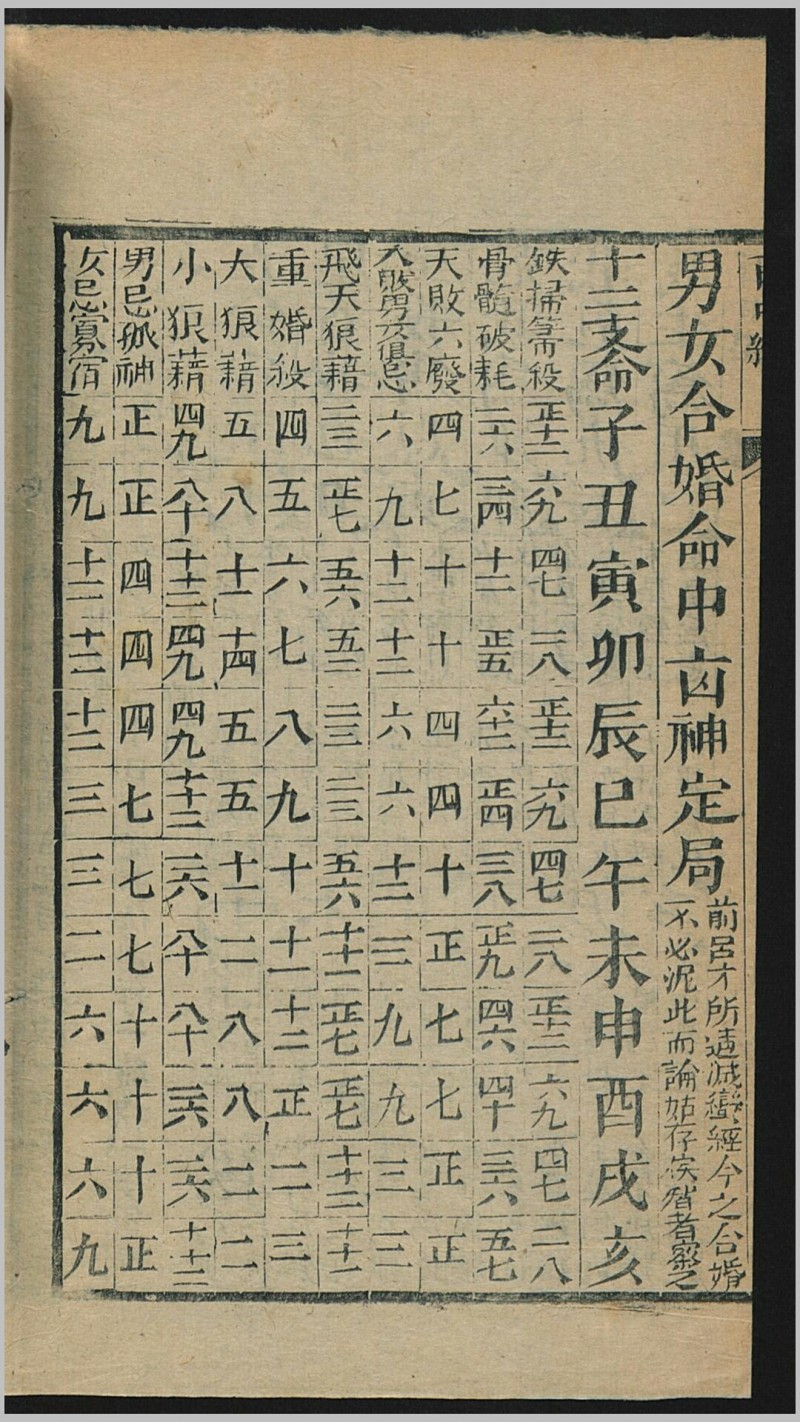 男女合婚命中㐫神定局
前呂才所造滅蠻經今之合婚
不必泥此而論姑存俟智者察之
十二支命子丑寅卯辰巳午未申酉戌亥
鉄掃箒殺 正十二 六九 四七 二八 正十二 六九 四七 二八 正十二 六九 四七 二八
骨髓破耗 二六 三四 十二 正五 六十二 正四 三八 正九 四六 四十 三六 五七
天敗六廢 四 七 十 十 四 四 十 正 七 七 正 正
大敗男女俱忌 六 九 十二 十二 六 六 十二 三 九 九 三 三
飛天狼藉 二三 正七 五六 五二 二三 二三 五六 十十二 正七 正七 十十二 十十二
重婚殺 四 五 六 七 八 九 十 十一 十二 正 二 三
大狼藉 五 八 十一 十四 五 五 十一 二 八 八 二 二
小狼藉 四九 八十 十十二 四九 四九 十十二 三六 八十 八十 三六 三六 十十二
男忌孤神 正 正 四 四 四 七 七 七 十 十 十 正
女忌寡宿 九 九 十二 十二 十二 三 三 二 六 六 六 九